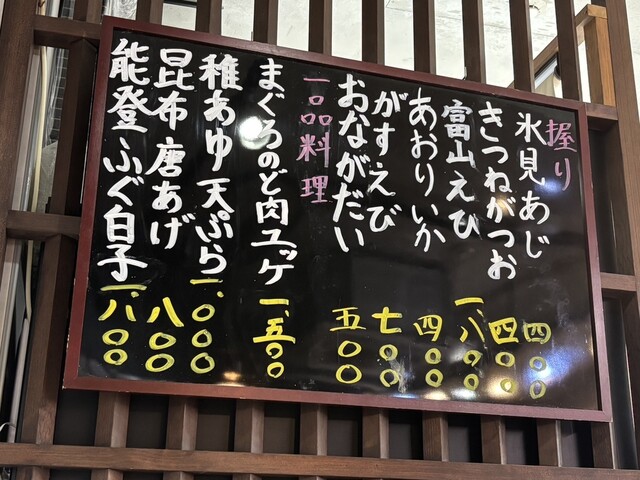 握り
氷見あじ 四〇〇
きつねがつお 四〇〇
富山えび 一、八〇〇
あおりいか 四〇〇
がすえび 七〇〇
おながだい 五〇〇
一品料理
まぐろのど肉ユッケ 一、五〇〇
稚あゆ天ぷら 一、〇〇〇
昆布唐あげ 八〇〇
能登ふぐ白子 一、八〇〇